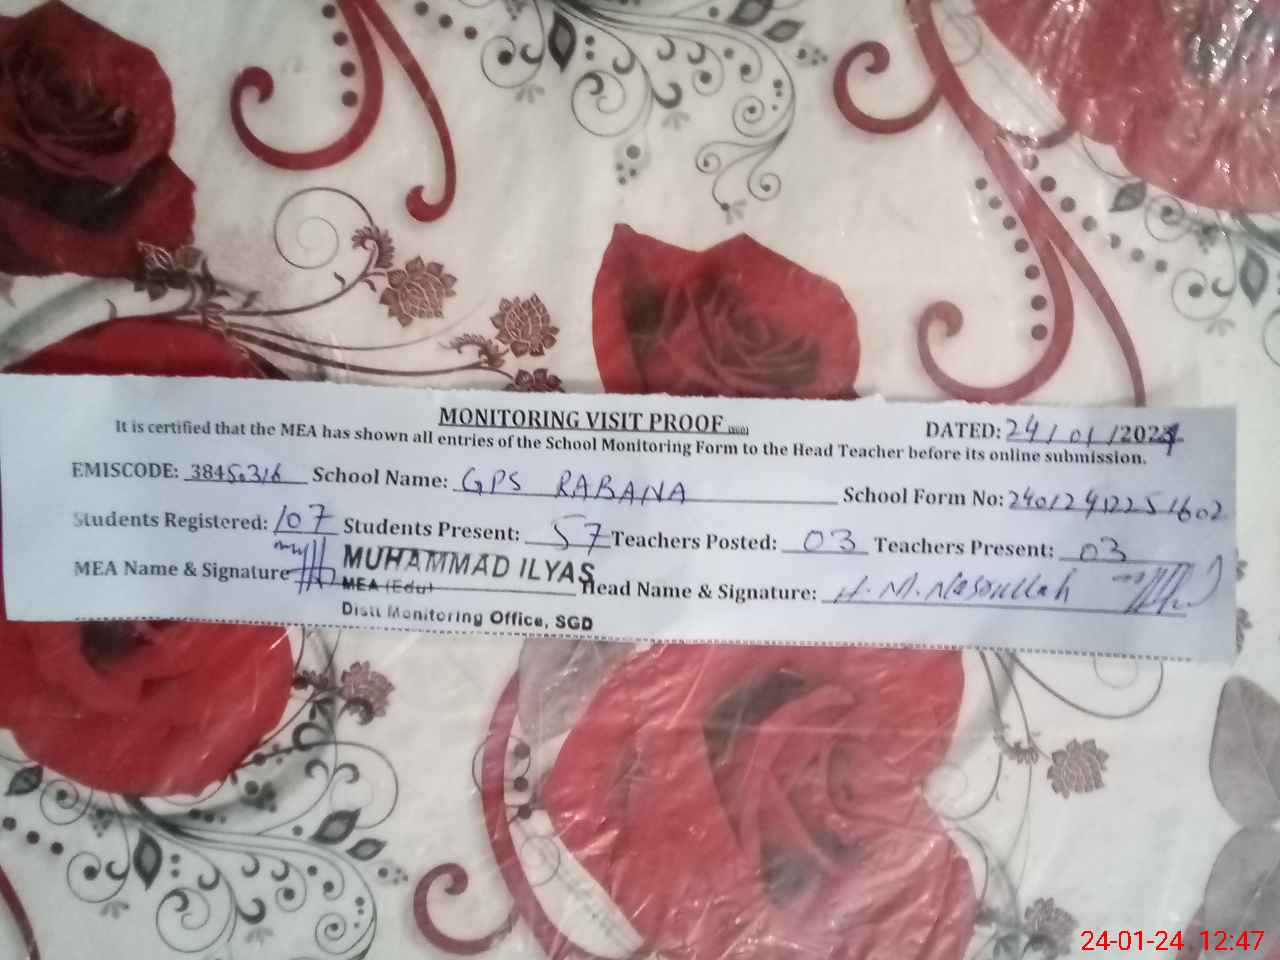 MONITORING VISIT PROOF
DATED: 24/01/2024
It is certified that the MEA has shown all entries of the School Monitoring Form to the Head Teacher before its online submission.
EMISCODE: 38450316 School Name: GPS RABANA School Form No: 24012412251602
Students Registered: 107 Students Present: 57 Teachers Posted: 03 Teachers Present: 03
MEA Name & Signature MUHAMMAD ILYAS Head Name & Signature: H. M. Nasrullah
MEA (Edu)
Distt Monitoring Office, SGD
24-01-24 12:47